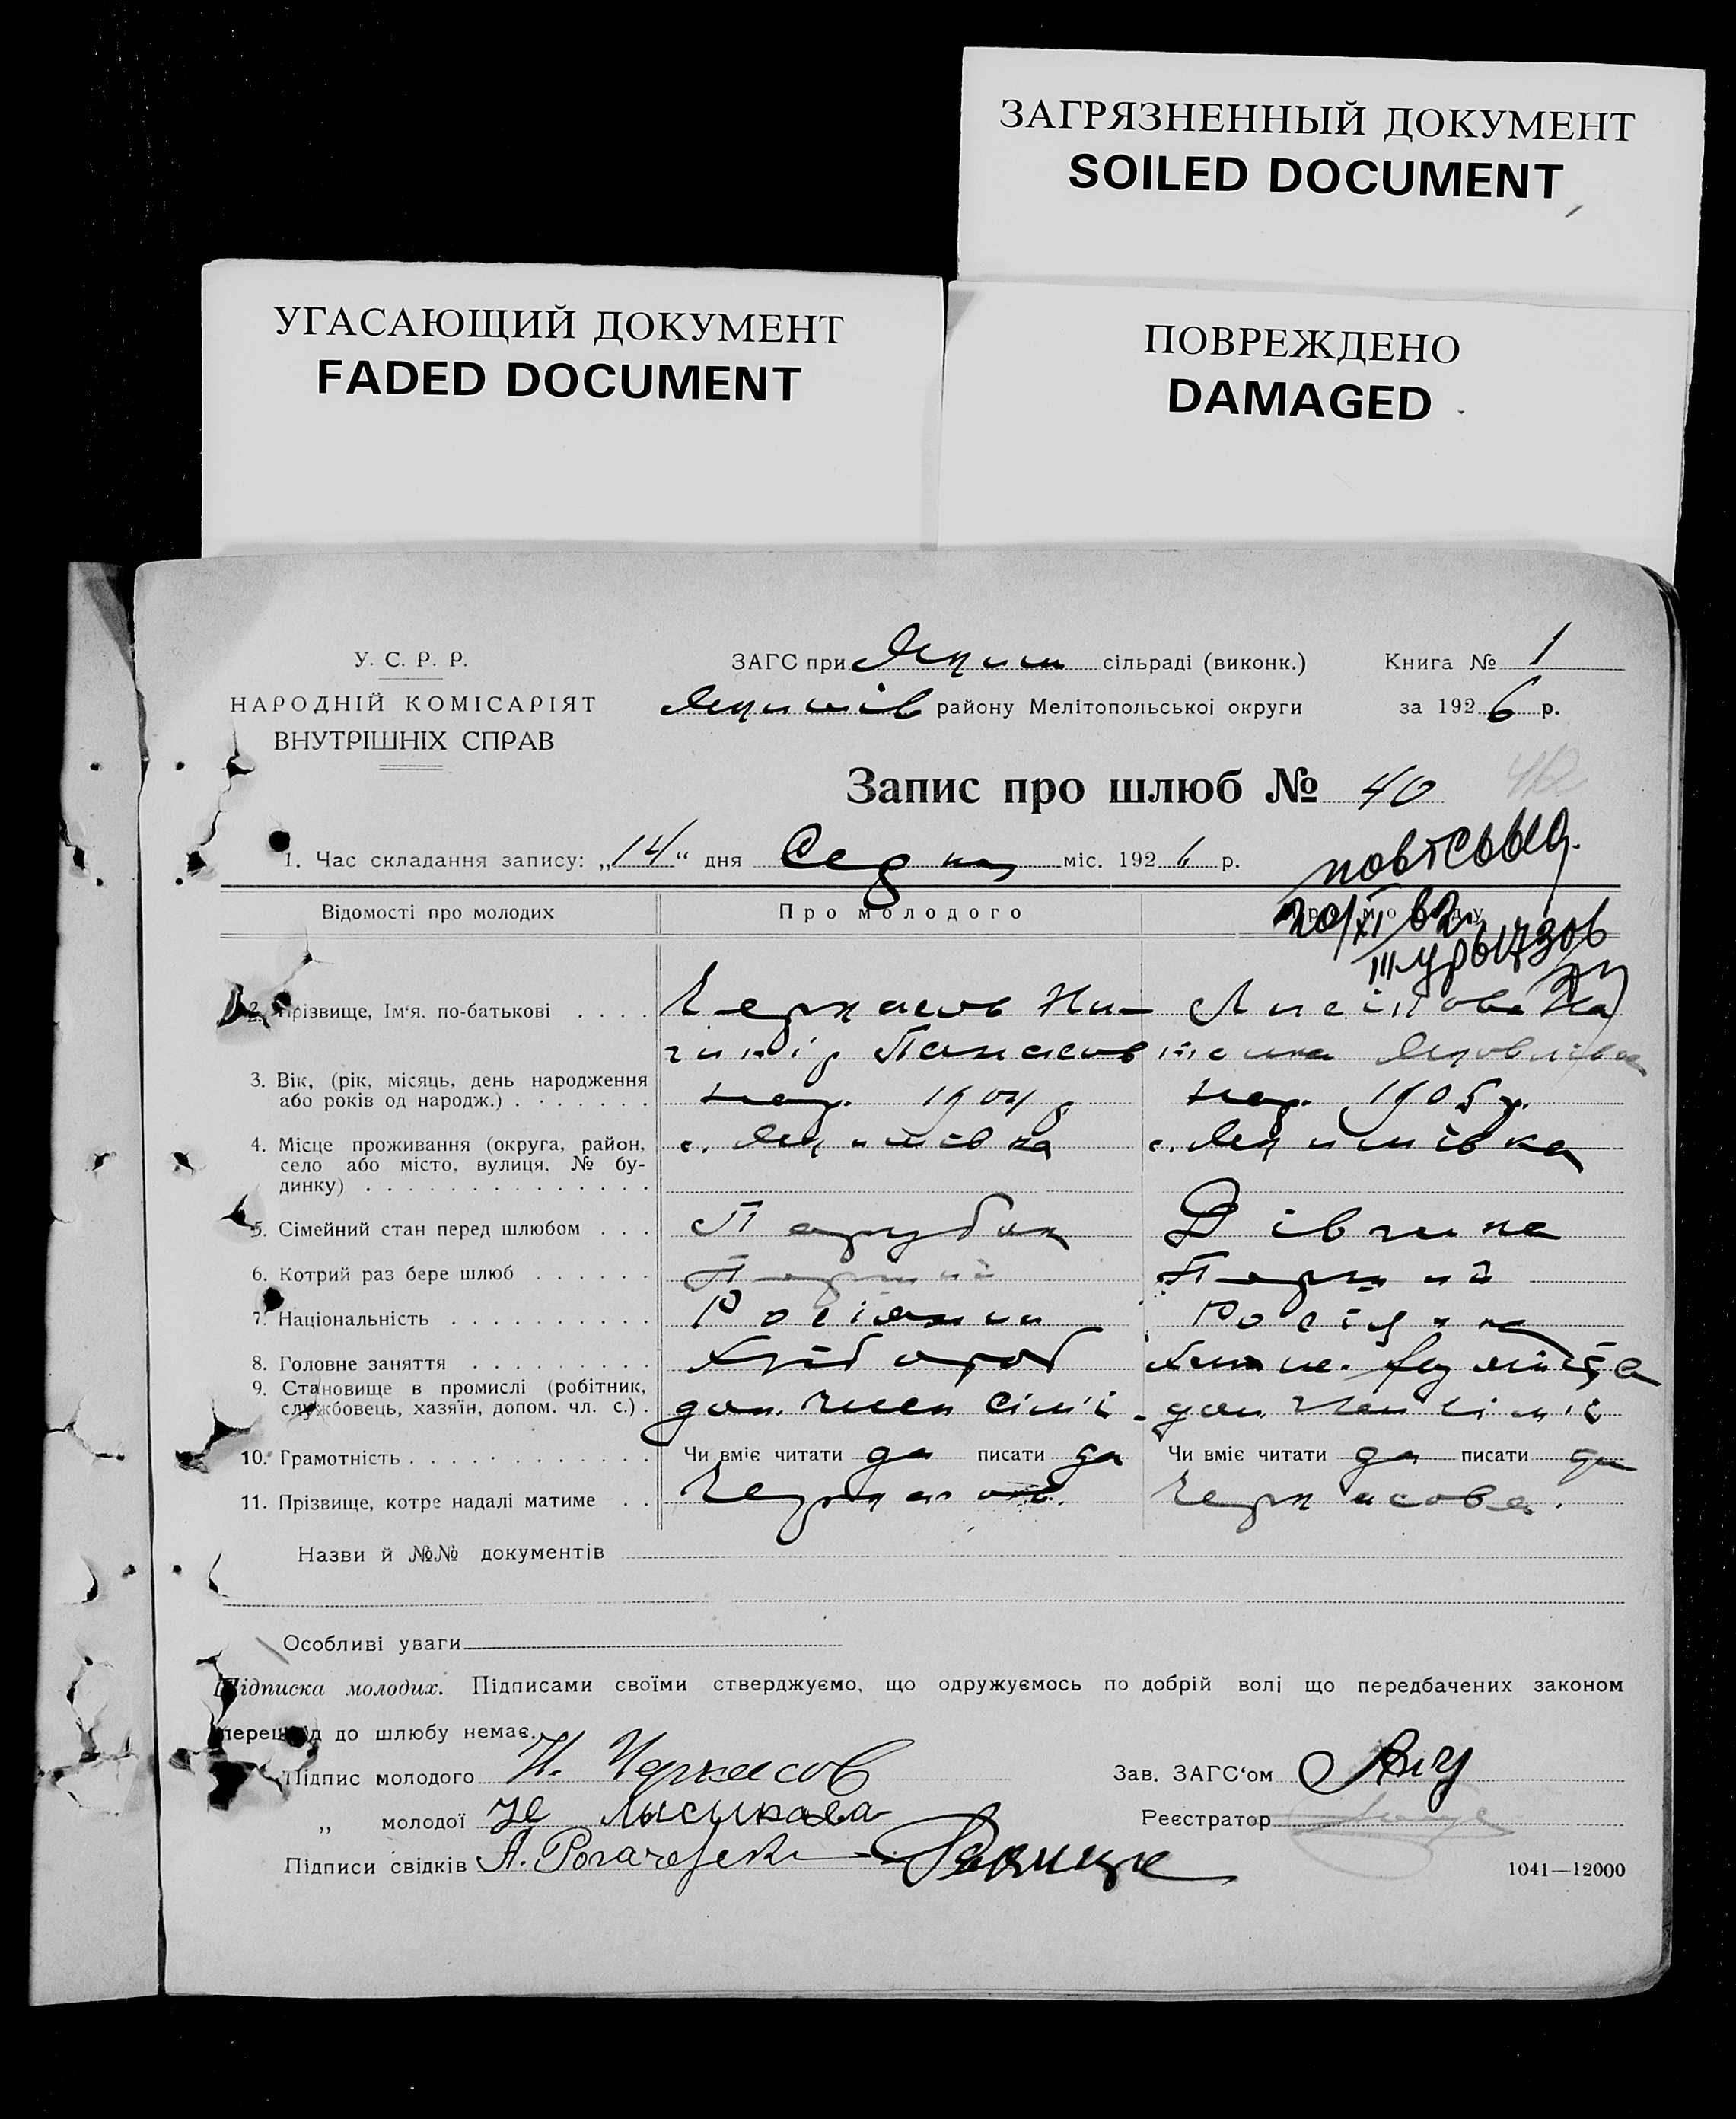 ЗАГРЯЗНЕННЫЙ ДОКУМЕНТ
SOILED DOCUMENT
УГАСАЮЩИЙ ДОКУМЕНТ
FADED DOCUMENT
ПОВРЕЖДЕНО
DAMAGED
У. С. Р. Р.
НАРОДНІЙ КОМІСАРІЯТ
ВНУТРІШНІХ СПРАВ
ЗАГС при Яким сільраді (виконк.)
Якимів району Мелітопольської округи
Книга № 1
за 1926 р.
Запис про шлюб № 40
1. Час складання запису: „14“ дня міс. 1926 р.
20/XI 62
Відомості про молодих Про молодого
2. Прізвище, Ім'я, по-батькові . . . . Черкасов Ни-
Панасов
3. Вік, (рік, місяць, день народження
або років од народж.) . . . . . . . нар. 1904 р нар. 1905 р.
4. Місце проживання (округа, район, с. Якимівка с. Якимівка
село або місто, вулиця, № бу-
динку) . . . . . . . . . . . . . .
5. Сімейний стан перед шлюбом . . . Парубок Дівчина
6. Котрий раз бере шлюб . . . . . . Перший Перший
7. Національність . . . . . . . . . . Росіянин Росіянка
8. Головне заняття . . . . . . . . . Хлібороб
9. Становище в промислі (робітник,
службовець, хазяїн, допом. чл. с.) . доп. член сім'ї доп. член сім'ї
10. Грамотність . . . . . . . . . . . . Чи вміє читати да писати да Чи вміє читати да писати да
11. Прізвище, котре надалі матиме . . Черкасов. Черкасова.
Назви й №№ документів
Особливі уваги
Підписка молодих. Підписами своїми стверджуємо, що одружуємось по добрій волі що передбачених законом
перешкод до шлюбу немає.
Підпис молодого Н. Черкасов Зав. ЗАГС'ом
„ молодої Реєстратор
Підписи свідків А.
1041—12000